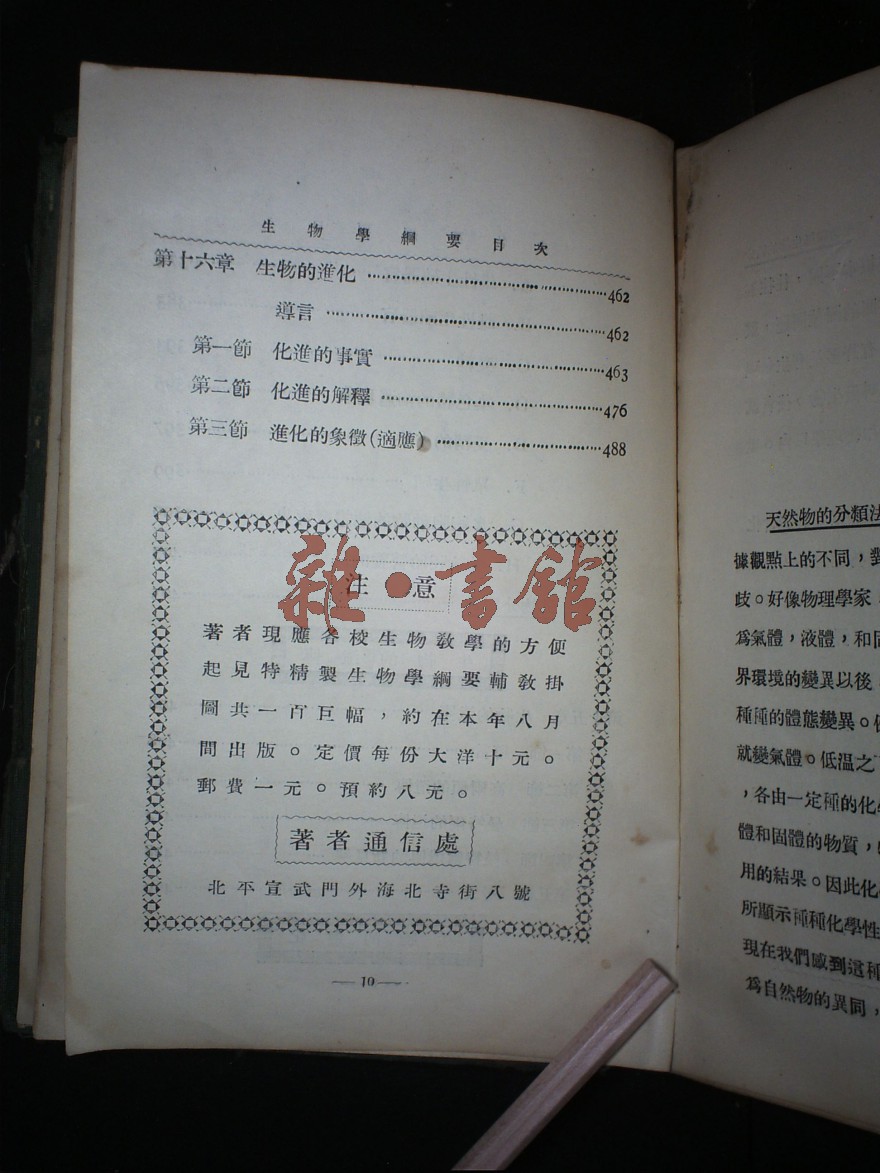 生物學綱要目次
第十六章 生物的進化 462
導言 462
第一節 化進的事實 463
第二節 化進的解釋 476
第三節 進化的象徵(適應) 488
雜·書館
注意
著者現應各校生物教學的方便
起見特精製生物學綱要輔教掛
圖共一百巨幅，約在本年八月
間出版。定價每份大洋十元。
郵費一元。預約八元。
著者通信處
北平宣武門外海北寺街八號
—10—
天然物的分類法
據觀點上的不同，對
歧。好像物理學家
爲氣體，液體，和固
界環境的變異以後
種種的體態變異。
就變氣體。低温之
，各由一定種的化
體和固體的物質，
用的結果。因此化
所顯示種種化學性
現在我們感到這種
爲自然物的異同，